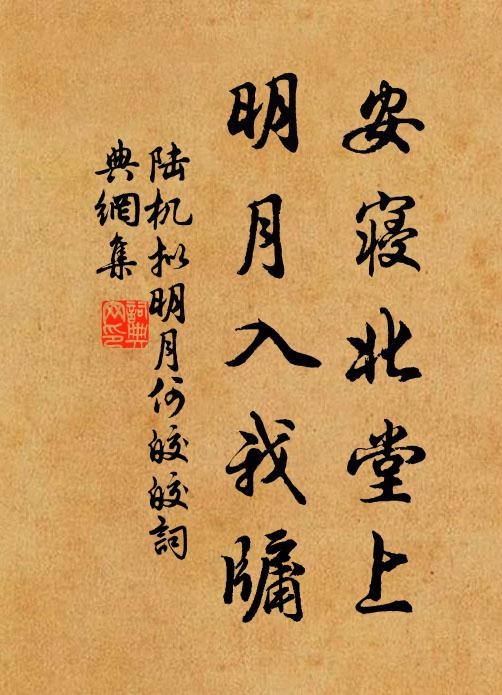 安寝北堂上
明月入我牖
陆机拟明月何皎皎詞
典網集
詞典
网印